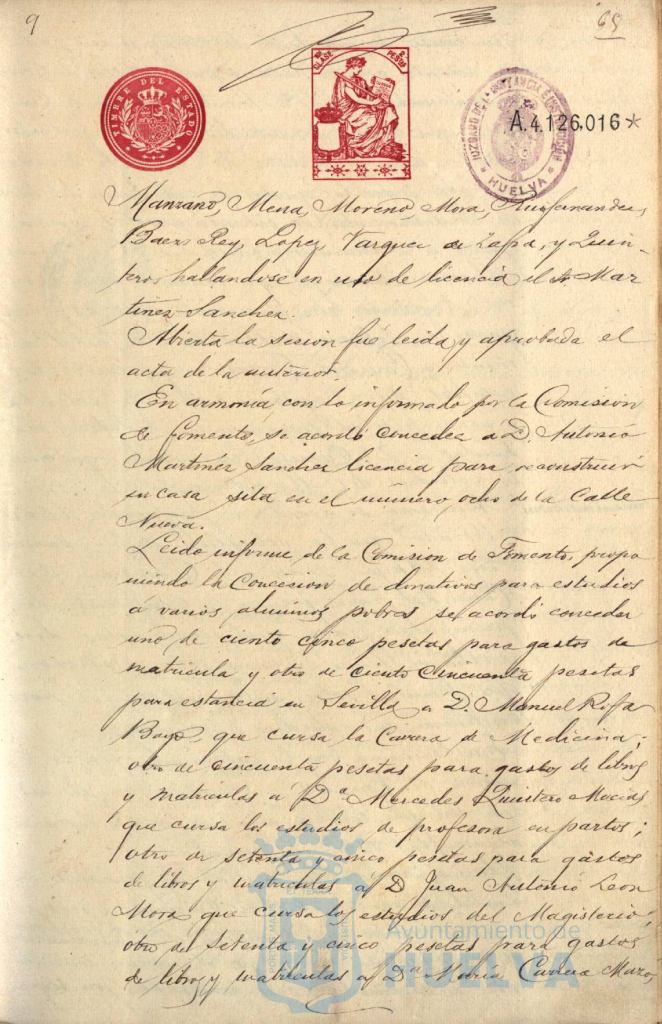 9
65
TIMBRE DEL ESTADO
9ª CLASE
PESETA
JUZGADO DE 1ª INSTANCIA E INSTRUCCION
HUELVA
A.4.126.016*
Manzano, Mena, Moreno, Mora, Ruifernandes,
Baez Rey, Lopez, Vazquez de Zapa, y Quin-
tero, hallandose en uso de licencia el Sr Mar
tinez Sanchez.
Abierta la sesion fué leida y aprobada el
acta de la anterior.
En armonía con lo informado por la Comission
de Fomento, se acordó conceder á D. Antonio
Martinez Sanchez licencia para reconstruir
su casa sita en el número ocho de la Calle
Nueva.
Leido informe de la Comision de Fomento, propo
niendo la Concesion de donativos para estudios
á varios alumnos pobres se acordó conceder
uno de ciento cinco pesetas para gastos de
matricula y otro de ciento cincuenta pesetas
para estancia en Sevilla á D. Manuel Rofa
Bayo, que cursa la Carrera de Medicina;
otro de cincuenta pesetas para gastos de libros
y matriculas á Dª Mercedes Quintero Macias
que cursa los estudios de profesora en partos;
otro de setenta y cinco pesetas para gastos
de libros y matriculas á D Juan Antonio Leon
Mora que cursa los estudios del Magisterio,
otro de setenta y cinco pesetas para gastos
de libros y matriculas á Dª Maria Carrera Maro,
Ayuntamiento de
HUELVA